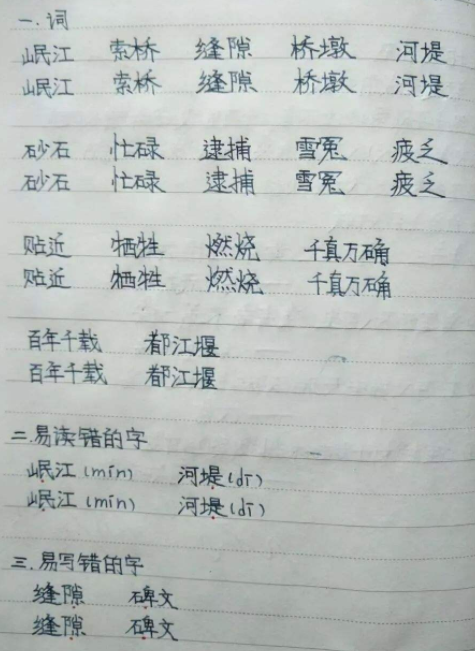 一.词
岷江 索桥 缝隙 桥墩 河堤
岷江 索桥 缝隙 桥墩 河堤
砂石 忙碌 逮捕 雪冤 疲乏
砂石 忙碌 逮捕 雪冤 疲乏
贴近 牺牲 燃烧 千真万确
贴近 牺牲 燃烧 千真万确
百年千载 都江堰
百年千载 都江堰
二.易读错的字
岷江(mín) 河堤(dī)
岷江(mín) 河堤(dī)
三.易写错的字
缝隙 碑文
缝隙 碑文